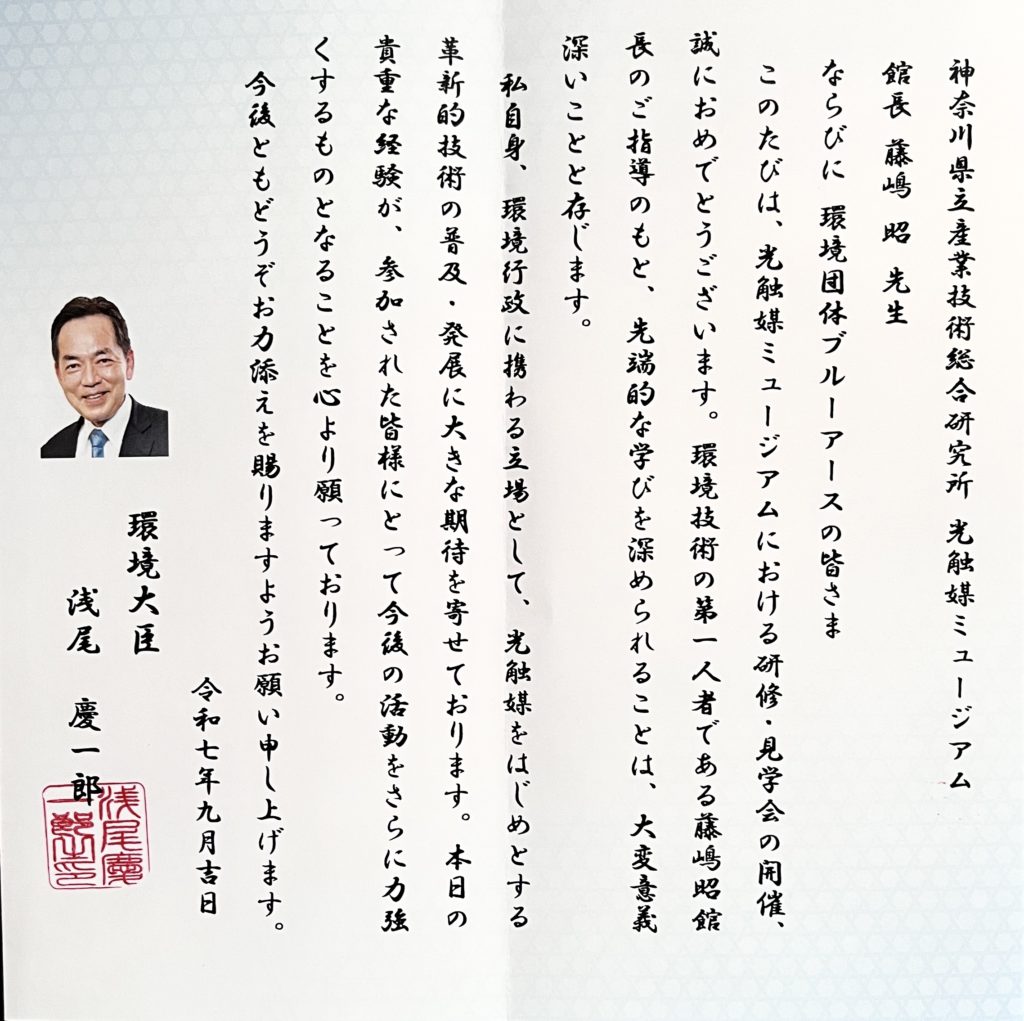 神奈川県立産業技術総合研究所 光触媒ミュージアム
館長 藤嶋 昭 先生
ならびに 環境団体ブルーアースの皆さま
このたびは、光触媒ミュージアムにおける研修・見学会の開催、
誠におめでとうございます。環境技術の第一人者である藤嶋昭館
長のご指導のもと、先端的な学びを深められることは、大変意義
深いことと存じます。
私自身、環境行政に携わる立場として、光触媒をはじめとする
革新的技術の普及・発展に大きな期待を寄せております。本日の
貴重な経験が、参加された皆様にとって今後の活動をさらに力強
くするものとなることを心より願っております。
今後ともどうぞお力添えを賜りますようお願い申し上げます。
令和七年九月吉日
環境大臣
浅尾 慶一郎
浅尾慶
一郎之印